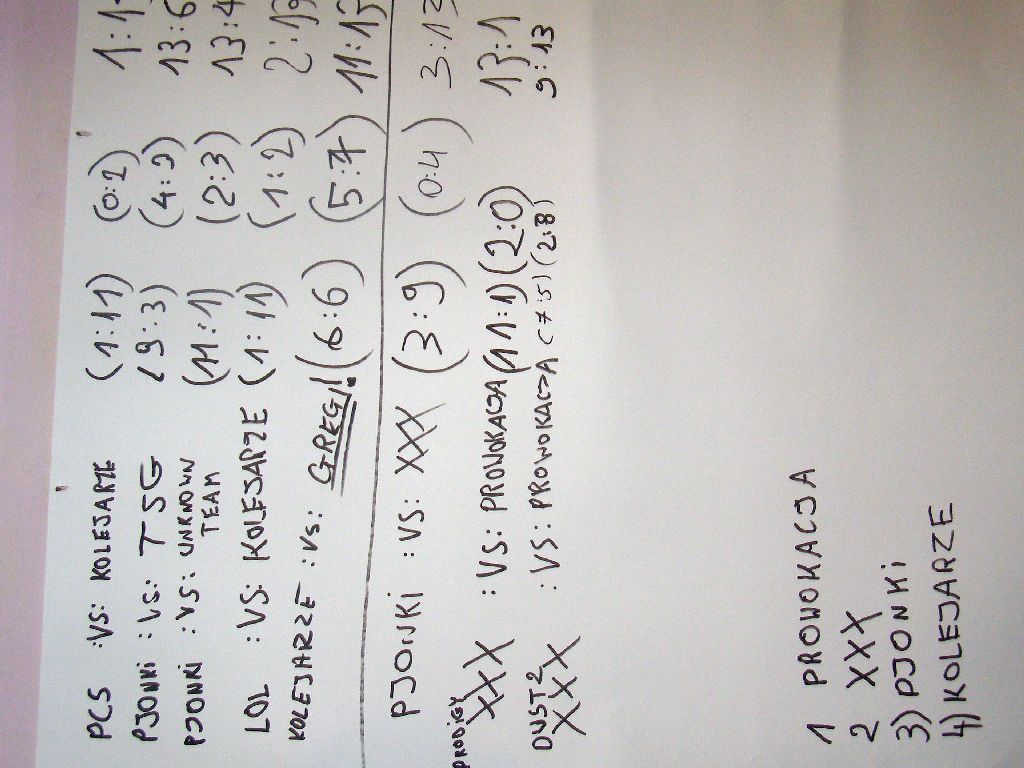 PCS :VS: KOLEJARZE (1:11) (0:2) 1:1
PJONKI :VS: TSG (9:3) (4:3) 13:6
PJONKI :VS: UNKNOWN TEAM (11:1) (2:3) 13:4
LOL :VS: KOLEJARZE (1:11) (1:2) 2:13
KOLEJARZE :VS: GREGJ! (6:6) (5:7) 11:13
PJONKI :VS: XXX (3:9) (0:4) 3:13
PRODIGY
XXX :VS: PROWOKACJA (11:1) (2:0) 13:1
DUST2
XXX :VS: PROWOKACJA (7:5) (2:8) 9:13
1 PROWOKACJA
2 XXX
3) PJONKI
4) KOLEJARZE